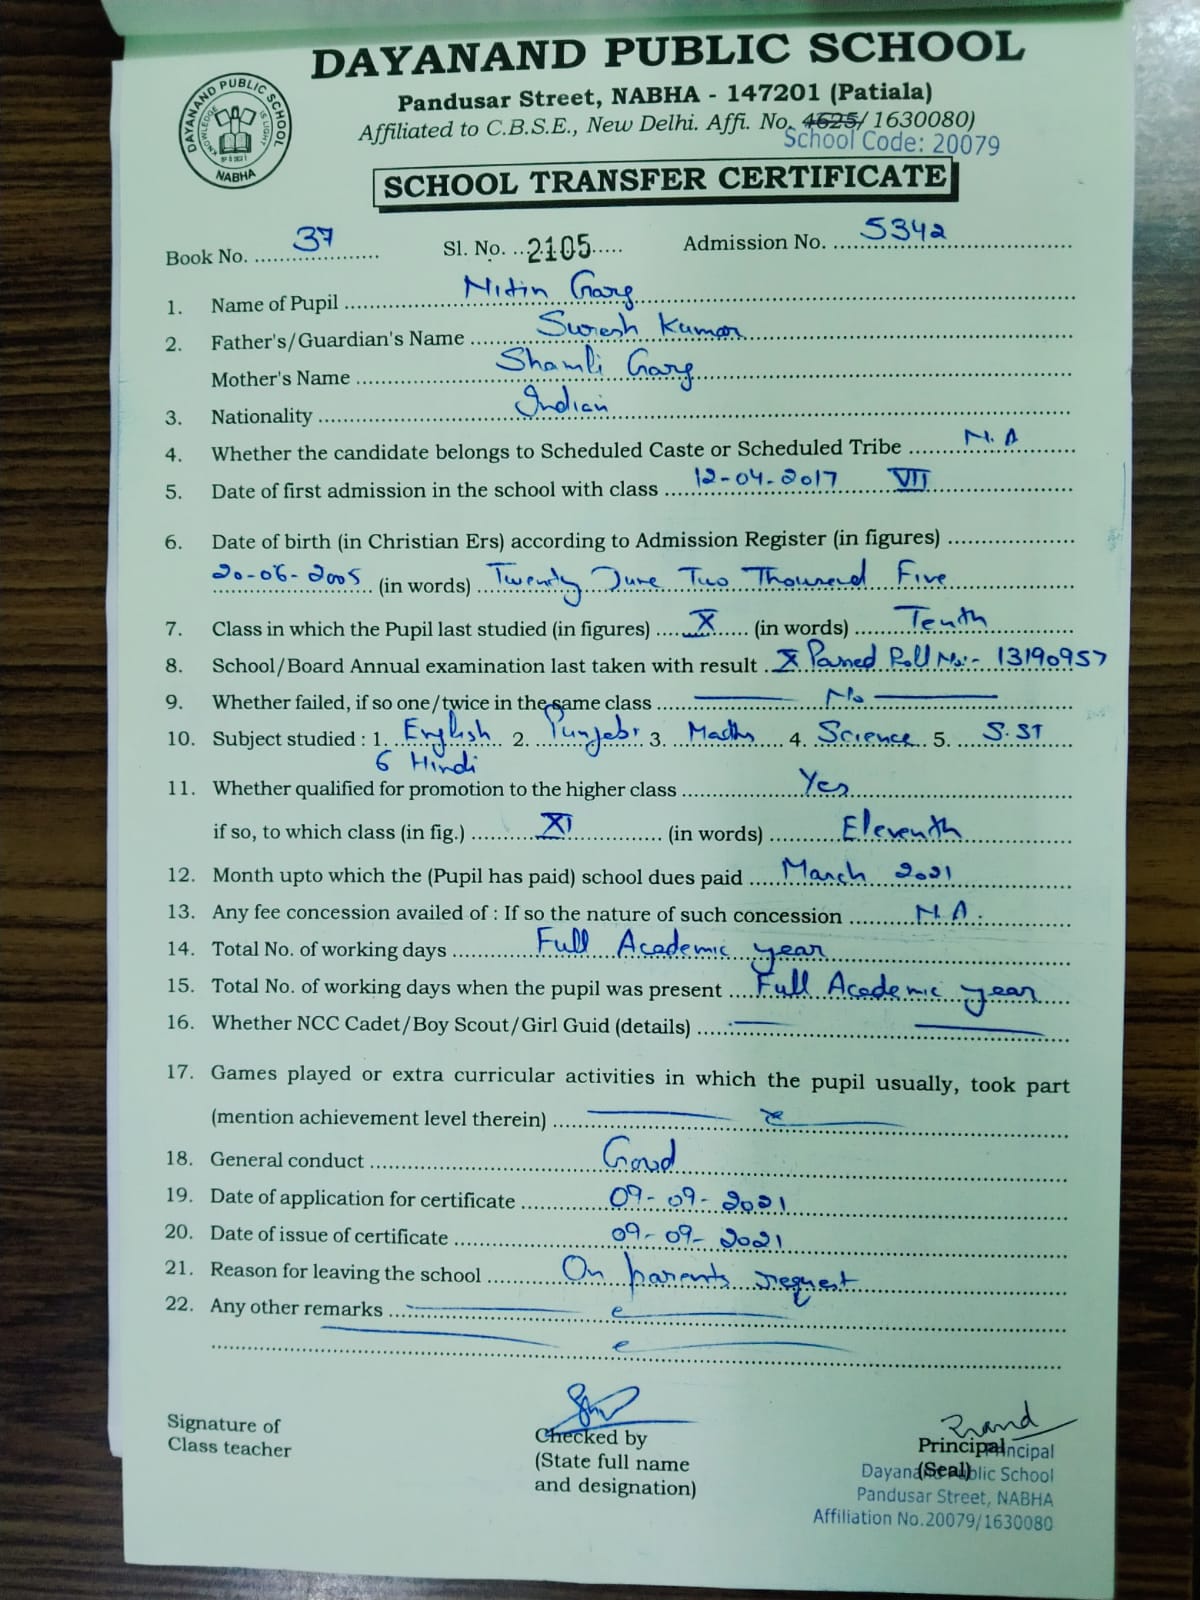 DAYANAND PUBLIC SCHOOL
Pandusar Street, NABHA - 147201 (Patiala)
Affiliated to C.B.S.E., New Delhi. Affi. No. 4625/ 1630080)
School Code: 20079
DAYANAND PUBLIC SCHOOL
KNOWLEDGE IS LIGHT
NABHA
SCHOOL TRANSFER CERTIFICATE
Book No. 37 Sl. No. 2105 Admission No. 5342
1. Name of Pupil Nitin Garg
2. Father's/Guardian's Name Suresh Kumar
Mother's Name Shamli Garg
3. Nationality Indian
4. Whether the candidate belongs to Scheduled Caste or Scheduled Tribe N.A
5. Date of first admission in the school with class 12-04-2017 VII
6. Date of birth (in Christian Ers) according to Admission Register (in figures)
20-06-2005 (in words) Twenty June Two Thousand Five
7. Class in which the Pupil last studied (in figures) X (in words) Tenth
8. School/Board Annual examination last taken with result X Passed Roll No:- 13190957
9. Whether failed, if so one/twice in the same class No
10. Subject studied : 1. English 2. Punjabi 3. Maths 4. Science 5. S.ST
6 Hindi
11. Whether qualified for promotion to the higher class Yes
if so, to which class (in fig.) XI (in words) Eleventh
12. Month upto which the (Pupil has paid) school dues paid March 2021
13. Any fee concession availed of : If so the nature of such concession N.A.
14. Total No. of working days Full Academic year
15. Total No. of working days when the pupil was present Full Academic year
16. Whether NCC Cadet/Boy Scout/Girl Guid (details)
17. Games played or extra curricular activities in which the pupil usually, took part
(mention achievement level therein)
18. General conduct Good
19. Date of application for certificate 09-09-2021
20. Date of issue of certificate 09-09-2021
21. Reason for leaving the school On parents request
22. Any other remarks
Signature of
Class teacher
Checked by
(State full name
and designation)
Principal
(Seal)
Principal
Dayanand Public School
Pandusar Street, NABHA
Affiliation No.20079/1630080